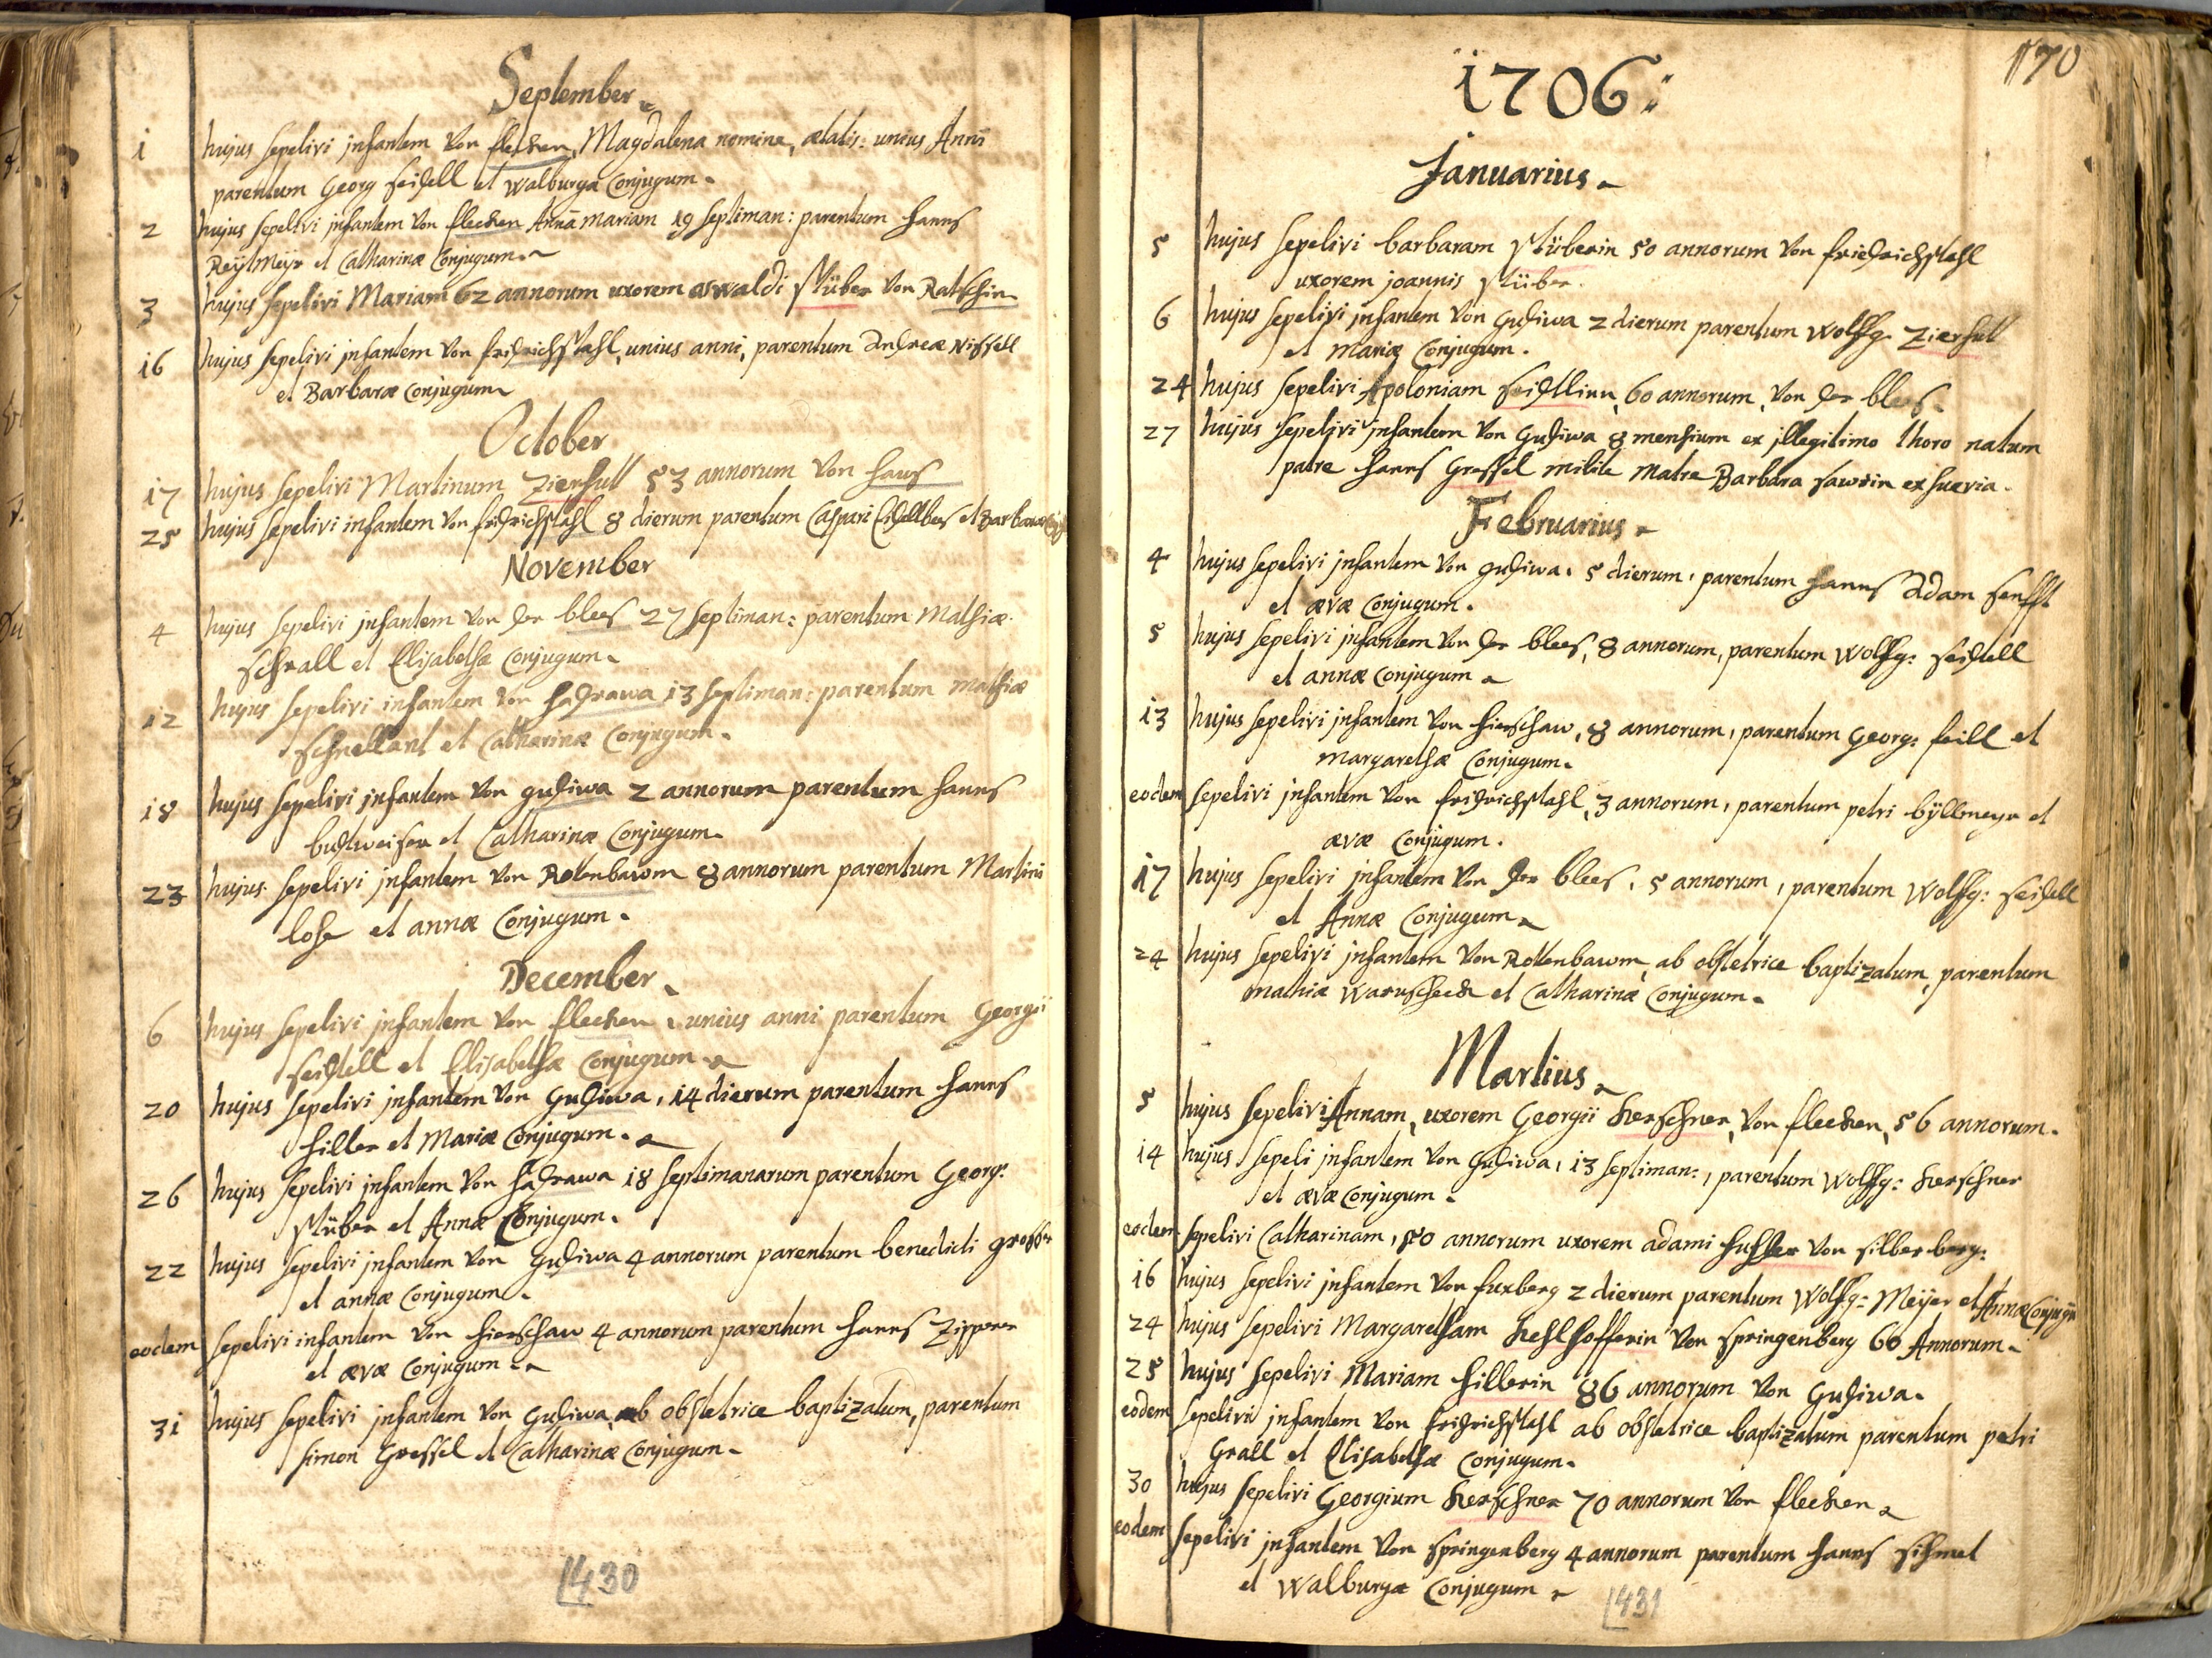 September
1 hujus sepelivi jnfantem von flecken, Magdalena nomine, ætatis: unius Anni
parentum Georg seidell et walburgæ Conjugum.
2 hujus sepelivi jnfantem von flecken Annā mariam 19 septiman: parentum hanns
Reÿlmeÿr et Catharinæ Conjugum.
3 hujus sepelivi Mariam 62 annorum uxorem aswaldi stüber von Ratschin
16 hujus sepelivi jnfantem von fridrichstahl, unius anni, parentum Andreæ Nissell
et Barbaræ Conjugum
October
17 hujus sepelivi Martinum Zierhutt 53 annorum von haus
25 hujus sepelivi infantem von fridrichstahl 8 dierum parentum Caspari et Barbaræ
November
4 hujus sepelivi jnfantem von der blees 27 septiman: parentum Mathiæ
schrall et Elisabethæ Conjugum.
12 hujus sepelivi infantem von hadrawa 13 septiman: parentum mathiæ
schnellant et Catharinæ Conjugum.
18 hujus sepelivi jnfantem von gudiwa 2 annorum parentum hanns
budweiser et Catharinæ Conjugum.
23 hujus sepelivi jnfantem von Rotenbawm 8 annorum parentum Martini
lose et annæ Conjugum.
December
6 hujus sepelivi jnfantem von flecken, unius anni parentum Georgii
seidtell et Elisabethæ Conjugum
20 hujus sepelivi jnfantem von Gudiwa, 14 dierum parentum hanns
hiller et Mariæ Conjugum.
26 hujus sepelivi jnfantem von hadrawa 18 septimanarum parentum Georg:
stüber et Annæ Conjugum.
22 hujus sepelivi jnfantem von Gudiwa 4 annorum parentum benedicti
et annæ Conjugum.
eodem sepelivi infantem von hirschaw 4 annorum parentum hanns Zipperer
et ævæ Conjugum
31 hujus sepelivi jnfantem von Gudiwa ab obstetrice baptizatum, parentum
simon Gressel et Catharinæ Conjugum.
430
170
1706:
Januarius
5 hujus sepelivi barbaram stüberin 50 annorum von friedrichstahl
uxorem joannis stüber.
6 hujus sepelivi jnfantem von Gudiwa 2 dierum parentum Wolffg. Zierhut
et mariæ Conjugum.
24 hujus sepelivi Apoloniam seidllinn, 60 annorum, von der blees.
27 hujus sepelivi jnfantem von Gudiwa 8 mensium ex jllegitimo thoro natum
patre hanns Gressel milite matre Barbara sawrin ex
Februarius
4 hujus sepelivi jnfantem von gudiwa, 5 dierum, parentum hanns Adam senfft
et ævæ Conjugum.
5 hujus sepelivi jnfantem von der blees, 8 annorum, parentum Wolffg: seidell
et annæ Conjugum
13 hujus sepelivi jnfantem von hirschaw, 8 annorum, parentum Georg: feill et
margarethæ Conjugum.
eodem sepelivi jnfantem von fridrichstahl, 3 annorum, parentum petri bÿllmeyr et
ævæ Conjugum.
17 hujus sepelivi jnfantem von der blees, 5 annorum, parentum Wolffg: seidell
et Annæ Conjugum
24 hujus sepelivi jnfantem von Rottenbawm, ab obstetrice baptizatum, parentum
mathiæ waruscheck et Catharinæ Conjugum.
Martius
5 hujus sepelivi Annam, uxorem Georgii kerschner, von flecken, 56 annorum.
14 hujus sepeli jnfantem von Gudiwa, 13 septiman:, parentum Wolffg: kerschner
et ævæ Conjugum.
eodem sepelivi Catharinam, 50 annorum uxorem adami von silberberg:
16 hujus sepelivi jnfantem von fuxberg 2 dierum parentum Wolffg: Meÿer et Annæ Conjugū
24 hujus sepelivi Margaretham kehlhofferin von springenberg 60 Annorum
25 hujus sepelivi Mariam hillerin 86 annorum von Gudiwa.
eodem sepelivi jnfantem von fridrichstahl ab obstetrice baptizatum parentum petri
Grall et Elisabethæ Conjugum.
30 hujus sepelivi Georgium kerschner 70 annorum von flecken
eodem sepelivi jnfantem von springenberg 4 annorum parentum hanns
et Walburgæ Conjugum
431